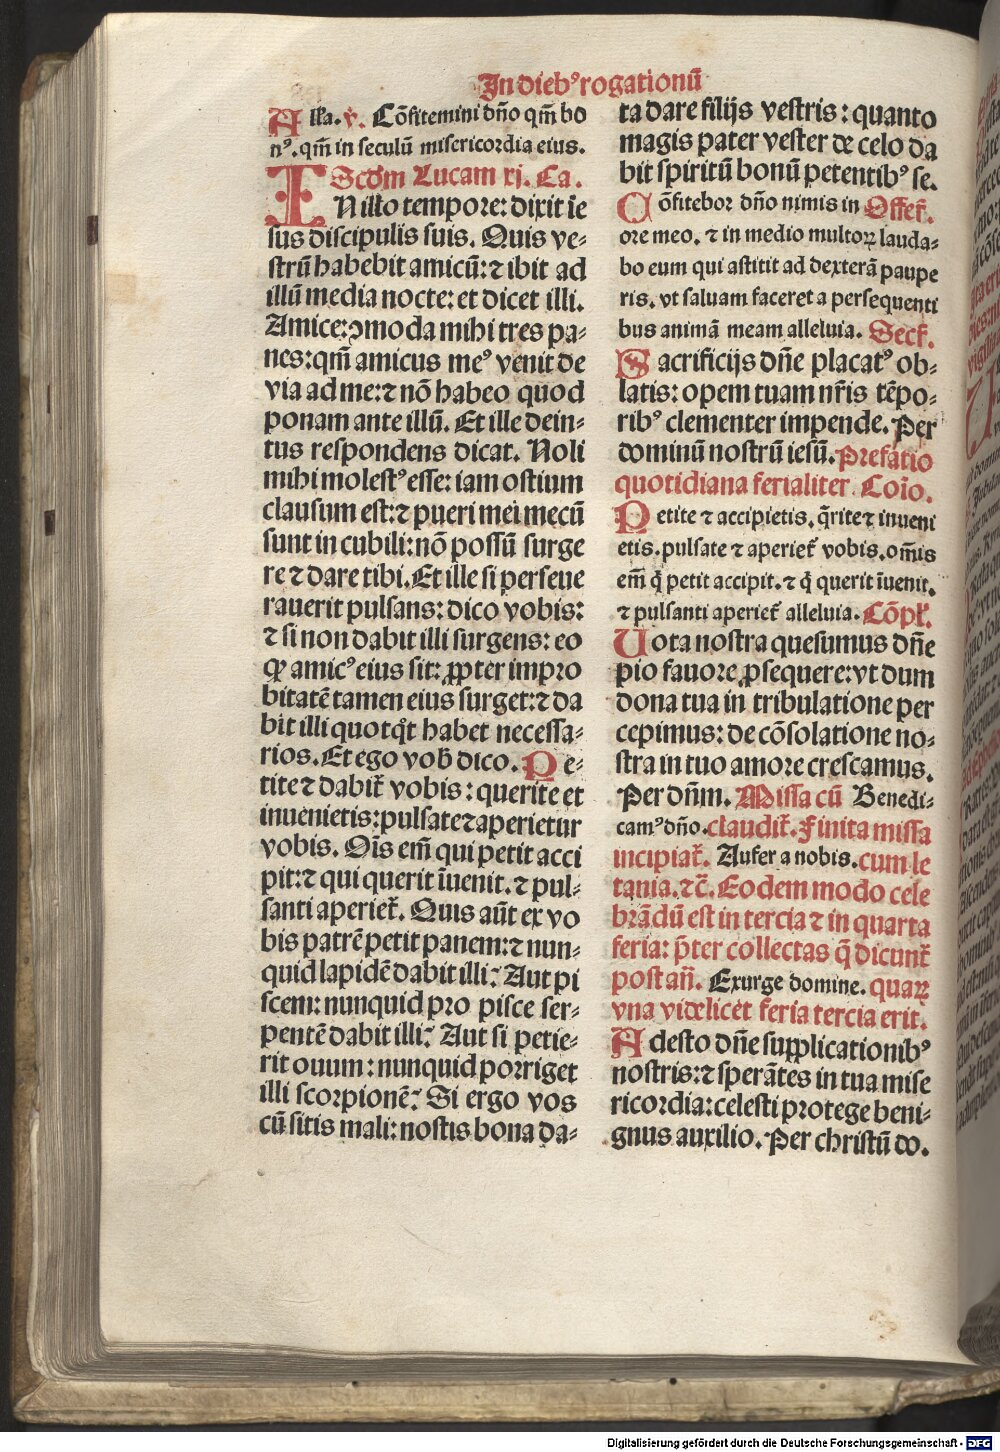 In diebꝰ rogationū
Alla. v̄. Cōfitemini dn̄o qm̄ bo
nꝰ. qm̄ in seculū misericordia eius.
Scd̄m Lucam xj. Ca.
IN illo tempore: dixit ie
sus discipulis suis. Quis ve-
strū habebit amicū: ⁊ ibit ad
illū media nocte: et dicet illi.
Amice: ꝯmoda mihi tres pa-
nes: qm̄ amicus meꝰ venit de
via ad me: ⁊ nō habeo quod
ponam ante illū. Et ille dein-
tus respondens dicat. Noli
mihi molestꝰ esse: iam ostium
clausum est: ⁊ pueri mei mecū
sunt in cubili: nō possū surge
re ⁊ dare tibi. Et ille si perseue
rauerit pulsans: dico vobis:
⁊ si non dabit illi surgens: eo
ꝙ amicꝰ eius sit: ꝓpter impro
bitatē tamen eius surget: ⁊ da
bit illi quotqͦt habet necessa-
rios. Et ego vob̄ dico. Pe-
tite ⁊ dabit̄ vobis: querite et
inuenietis: pulsate ⁊ aperietur
vobis. Oīs em̄ qui petit acci
pit: ⁊ qui querit īuenit. ⁊ pul-
santi aperiet̄. Quis aūt ex vo
bis patrē petit panem: ⁊ nun-
quid lapidē dabit illi? Aut pi
scem: nunquid pro pisce ser-
pentē dabit illi? Aut si petie-
rit ouum: nunquid porriget
illi scorpionē? Si ergo vos
cū sitis mali: nostis bona da-
ta dare filijs vestris: quanto
magis pater vester de celo da
bit spiritū bonū petentibꝰ se.
Cōfitebor dn̄o nimis in Offer̄.
ore meo. ⁊ in medio multoꝝ lauda-
bo eum qui astitit ad dexterā paupe
ris. vt saluam faceret a persequenti
bus animā meam alleluia. Secr̄.
Sacrificijs dn̄e placatꝰ ob-
latis: opem tuam nr̄is tēpo-
ribꝰ clementer impende. Per
dominū nostrū iesū. Prefatio
quotidiana ferialiter. Coīo.
Petite ⁊ accipietis. q̄rite ⁊ inueni
etis. pulsate ⁊ aperiet̄ vobis. om̄is
em̄ q̇ petit accipit. ⁊ q̇ querit īuenit.
⁊ pulsanti aperiet̄ alleluia. Cōpl̄.
Uota nostra quesumus dn̄e
pio fauore ꝓsequere: vt dum
dona tua in tribulatione per
cepimus: de cōsolatione no-
stra in tuo amore crescamus.
Per dn̄m. Missa cū Benedi-
camꝰ dn̄o. claudit̄. Finita missa
incipiat̄. Aufer a nobis. cum le
tania. ⁊c̄. Eodem modo cele
brādū est in tercia ⁊ in quarta
feria: p̄ter collectas q̄ dicunt̄
post an̄. Exurge domine. quaꝝ
vna videlicet feria tercia erit.
Adesto dn̄e supplicationibꝰ
nostris: ⁊ sperātes in tua mise
ricordia: celesti protege beni-
gnus auxilio. Per christū do.
Digitalisierung gefördert durch die Deutsche Forschungsgemeinschaft - DFG